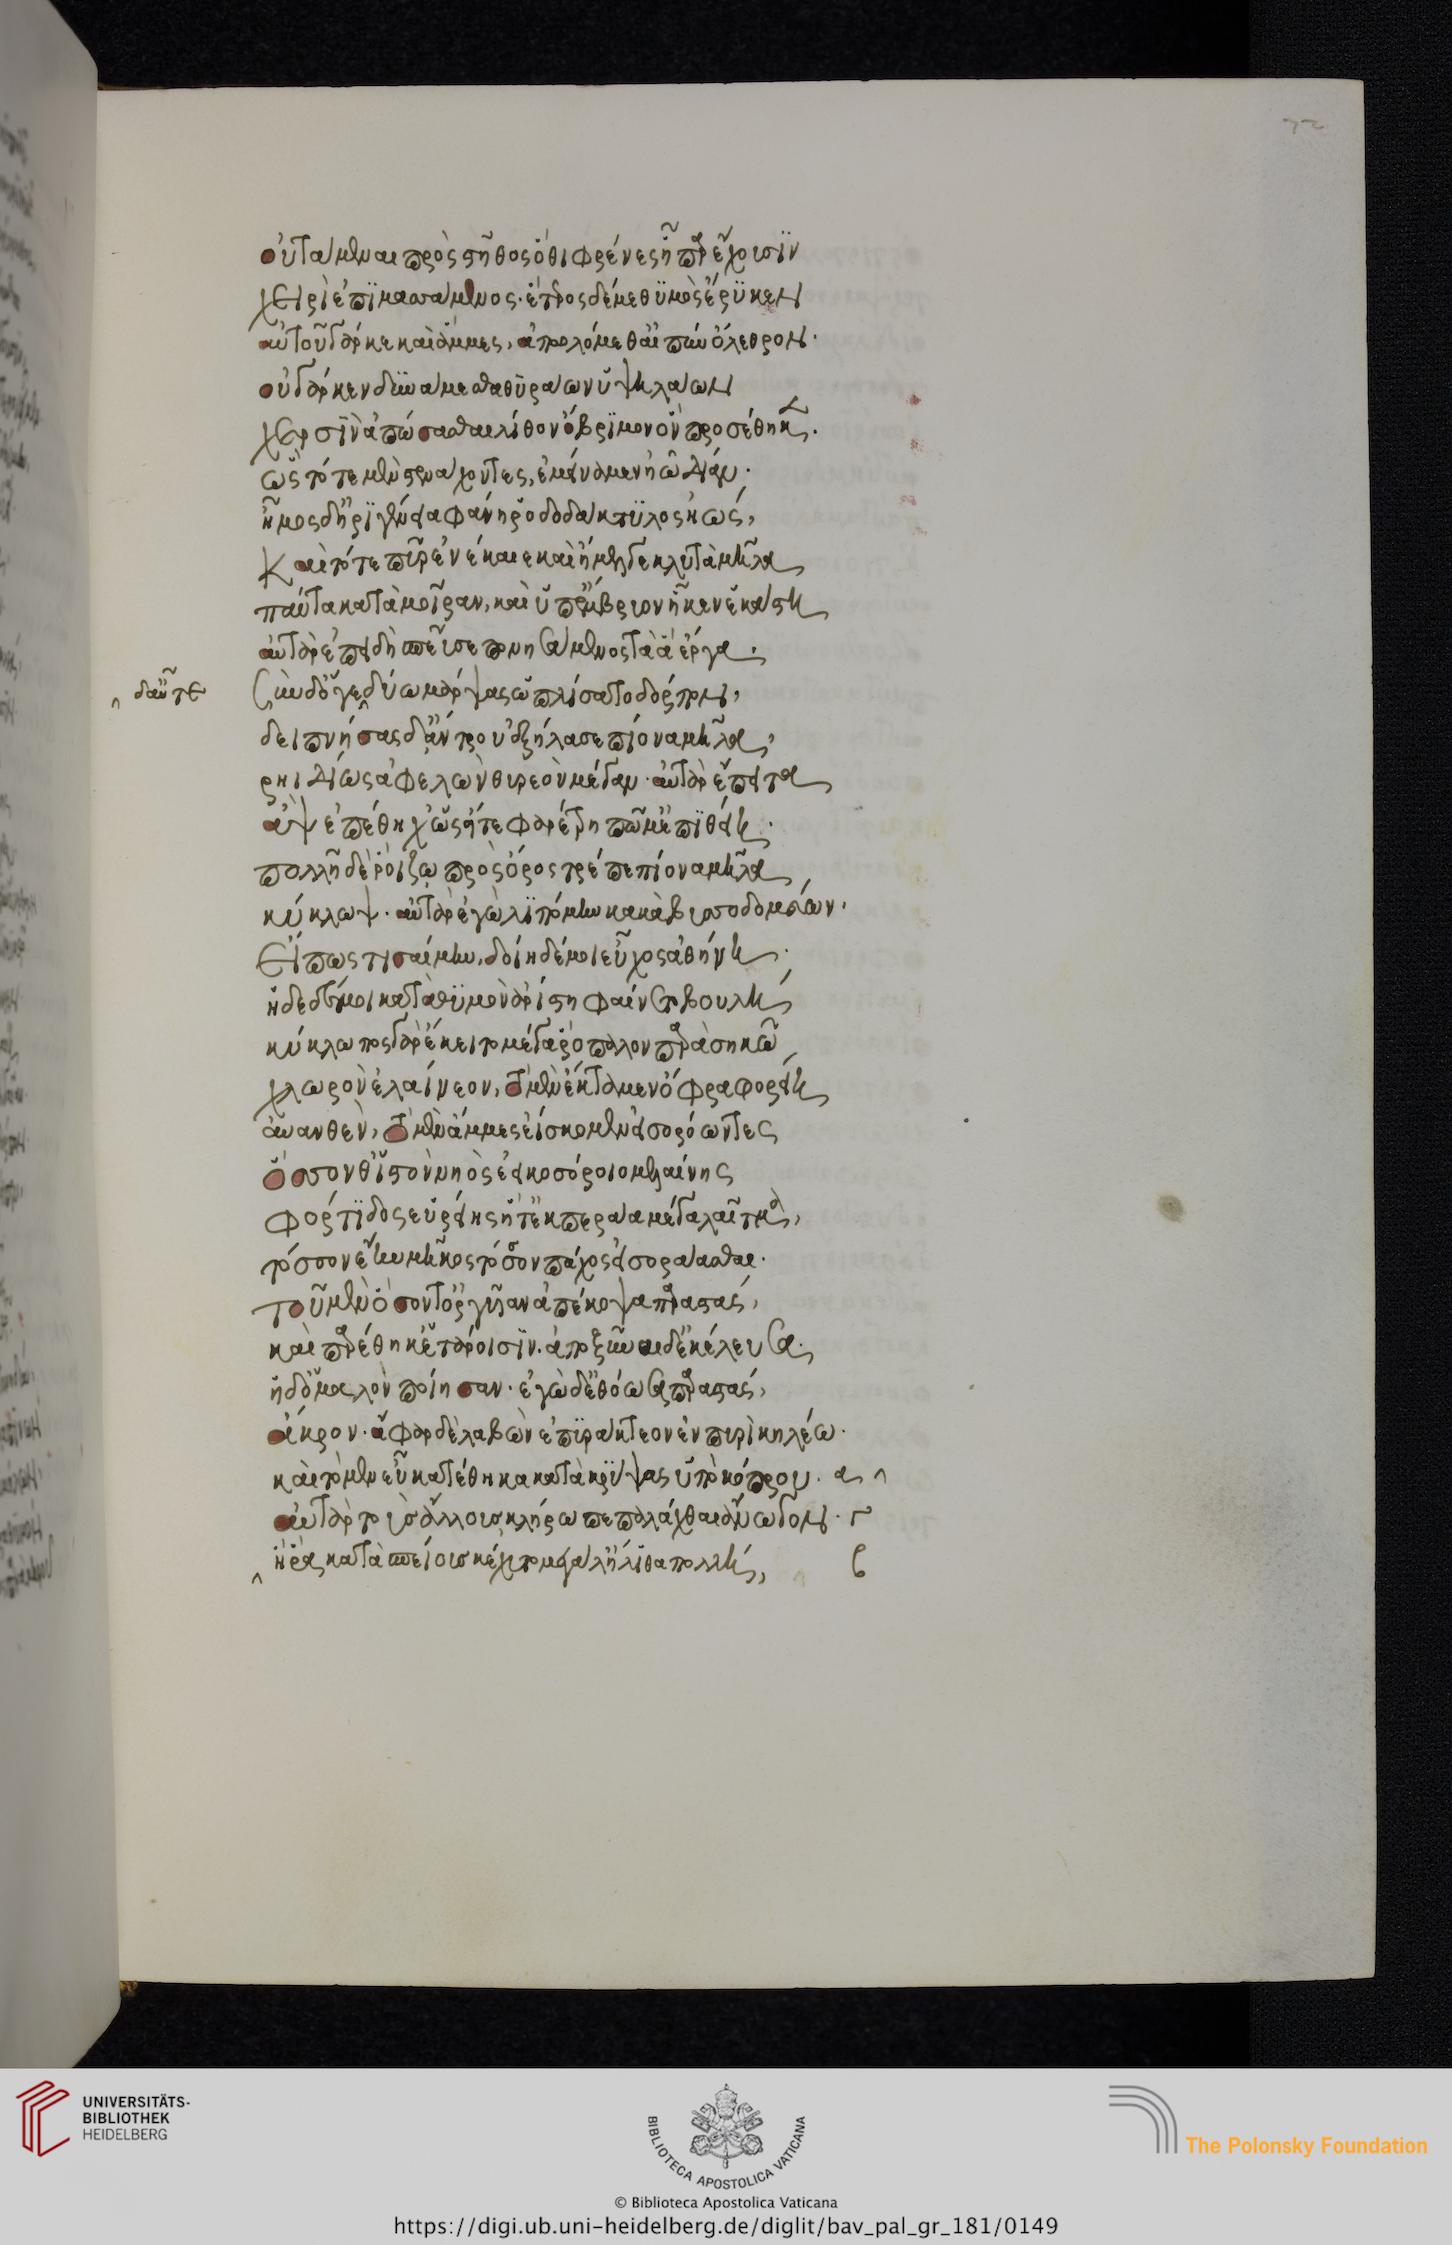 οὐτάμεναι πρὸς στῆθος ὅθι φρένες ἧπαρ ἔχουσιν
χεῖρ' ἐπιμασσάμενος· ἕτερος δέ με θυμὸς ἔρυκεν
αὐτοῦ γάρ κε καὶ ἄμμες, ἀπολόμεθ' αἰπὺν ὄλεθρον·
οὐ γάρ κεν δυνάμεσθα θυράων ὑψηλάων
χερσὶν ἀπώσασθαι λίθον ὄβριμον ὃν προσέθηκεν·
ὣς τότε μὲν στενάχοντες, ἐμείναμεν ἠῶ δῖαν·
ἦμος δ' ἠριγένεια φάνη ῥοδοδάκτυλος ἠώς,
καὶ τότε πῦρ ἐνέκαιε καὶ ἤμελγε κλυτὰ μῆλα
πάντα κατὰ μοῖραν, καὶ ὑπ' ἔμβρυον ἧκεν ἑκάστη
αὐτὰρ ἐπειδὴ σπεῦσε πονησάμενος τὰ ἃ ἔργα·
δαὖτε
σὺν δ' ὅγε δύω μάρψας ὡπλίσατο δόρπον,
δειπνήσας δ' ἄντρου ἐξήλασε πίονα μῆλα,
ῥηιδίως ἀφελὼν θυρεὸν μέγαν· αὐτὰρ ἔπειτα
ἂψ ἐπέθηχ' ὡς εἴτε φαρέτρη πῶμ' ἐπιθείη·
πολλῇ δὲ ῥοίζω πρὸς ὄρος τρέπε πίονα μῆλα
κύκλωψ· αὐτὰρ ἐγὼ λιπόμην κακὰ βυσσοδομεύων·
εἴ πως τισαίμην, δοίη δέ μοι εὖχος ἀθήνη·
ἥδε δέ μοι κατὰ θυμὸν ἀρίστη φαίνετο βουλή
κύκλωπος γὰρ ἔκειτο μέγα ῥόπαλον παρὰ σηκῶ
χλωρὸν ἐλαίνεον, τὸ μὲν ἔκταμεν ὄφρα φορείη
αὐανθὲν, τὸ μὲν ἄμμες ἐίσκομεν εἰσορόωντες
ὅσσον θ' ἱστὸν νηὸς ἐεικοσόροιο μελαίνης
φορτίδος εὐρείης ἥτ' ἐκπεράα μέγα λαῖτμα,
τόσσον ἔην μῆκος τόσσον πάχος εἰσοράασθαι·
τοῦ μὲν ὅσον τ' ὄργυιαν ἀπέκοψα παραστάς,
καὶ παρέθηκ' ἑτάροισιν· ἀποξῦναι δ' ἐκέλευσα·
ἡ δ' ὁμαλὸν ποίησαν· ἐγὼ δ' ἐθόωσα παραστάς,
ἄκρον· ἄφαρ δὲ λαβὼν ἐπυράκτεον ἐν πυρὶ κηλέω·
καὶ τὸ μὲν εὖ κατέθηκα κατακρύψας ὑπὸ κόπρου· α
αὐτὰρ τοὺς ἄλλους κλήρω πεπαλάχθαι ἄνωγον· γ
ἥ ῥα κατὰ σπείους κέχυτο μεγάλ' ἤλιθα πολλή, β
UNIVERSITÄTS-
BIBLIOTHEK
HEIDELBERG
BIBLIOTECA APOSTOLICA VATICANA
© Biblioteca Apostolica Vaticana
The Polonsky Foundation
https://digi.ub.uni-heidelberg.de/diglit/bav_pal_gr_181/0149